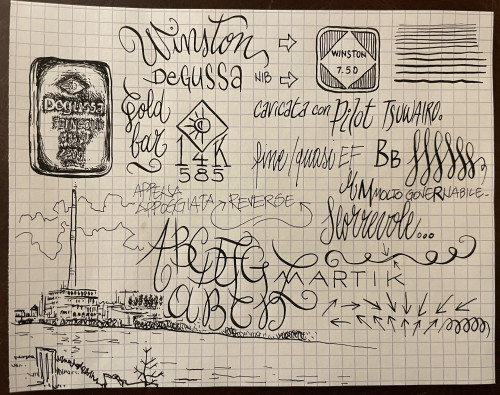 Winston,
DeGUSSa
NIB
WINSTON
7.50
DeGussa
FEINGOLD
Gold
bar
14K
585
caricata con Pilot TSUWAIRO.
fine/quasi EF
BB
M MOLTO GOVERNABILE-
APPENA
APPOGGIATA
REVERSE
Scorrevole...
ABCDEFG
MARTIK